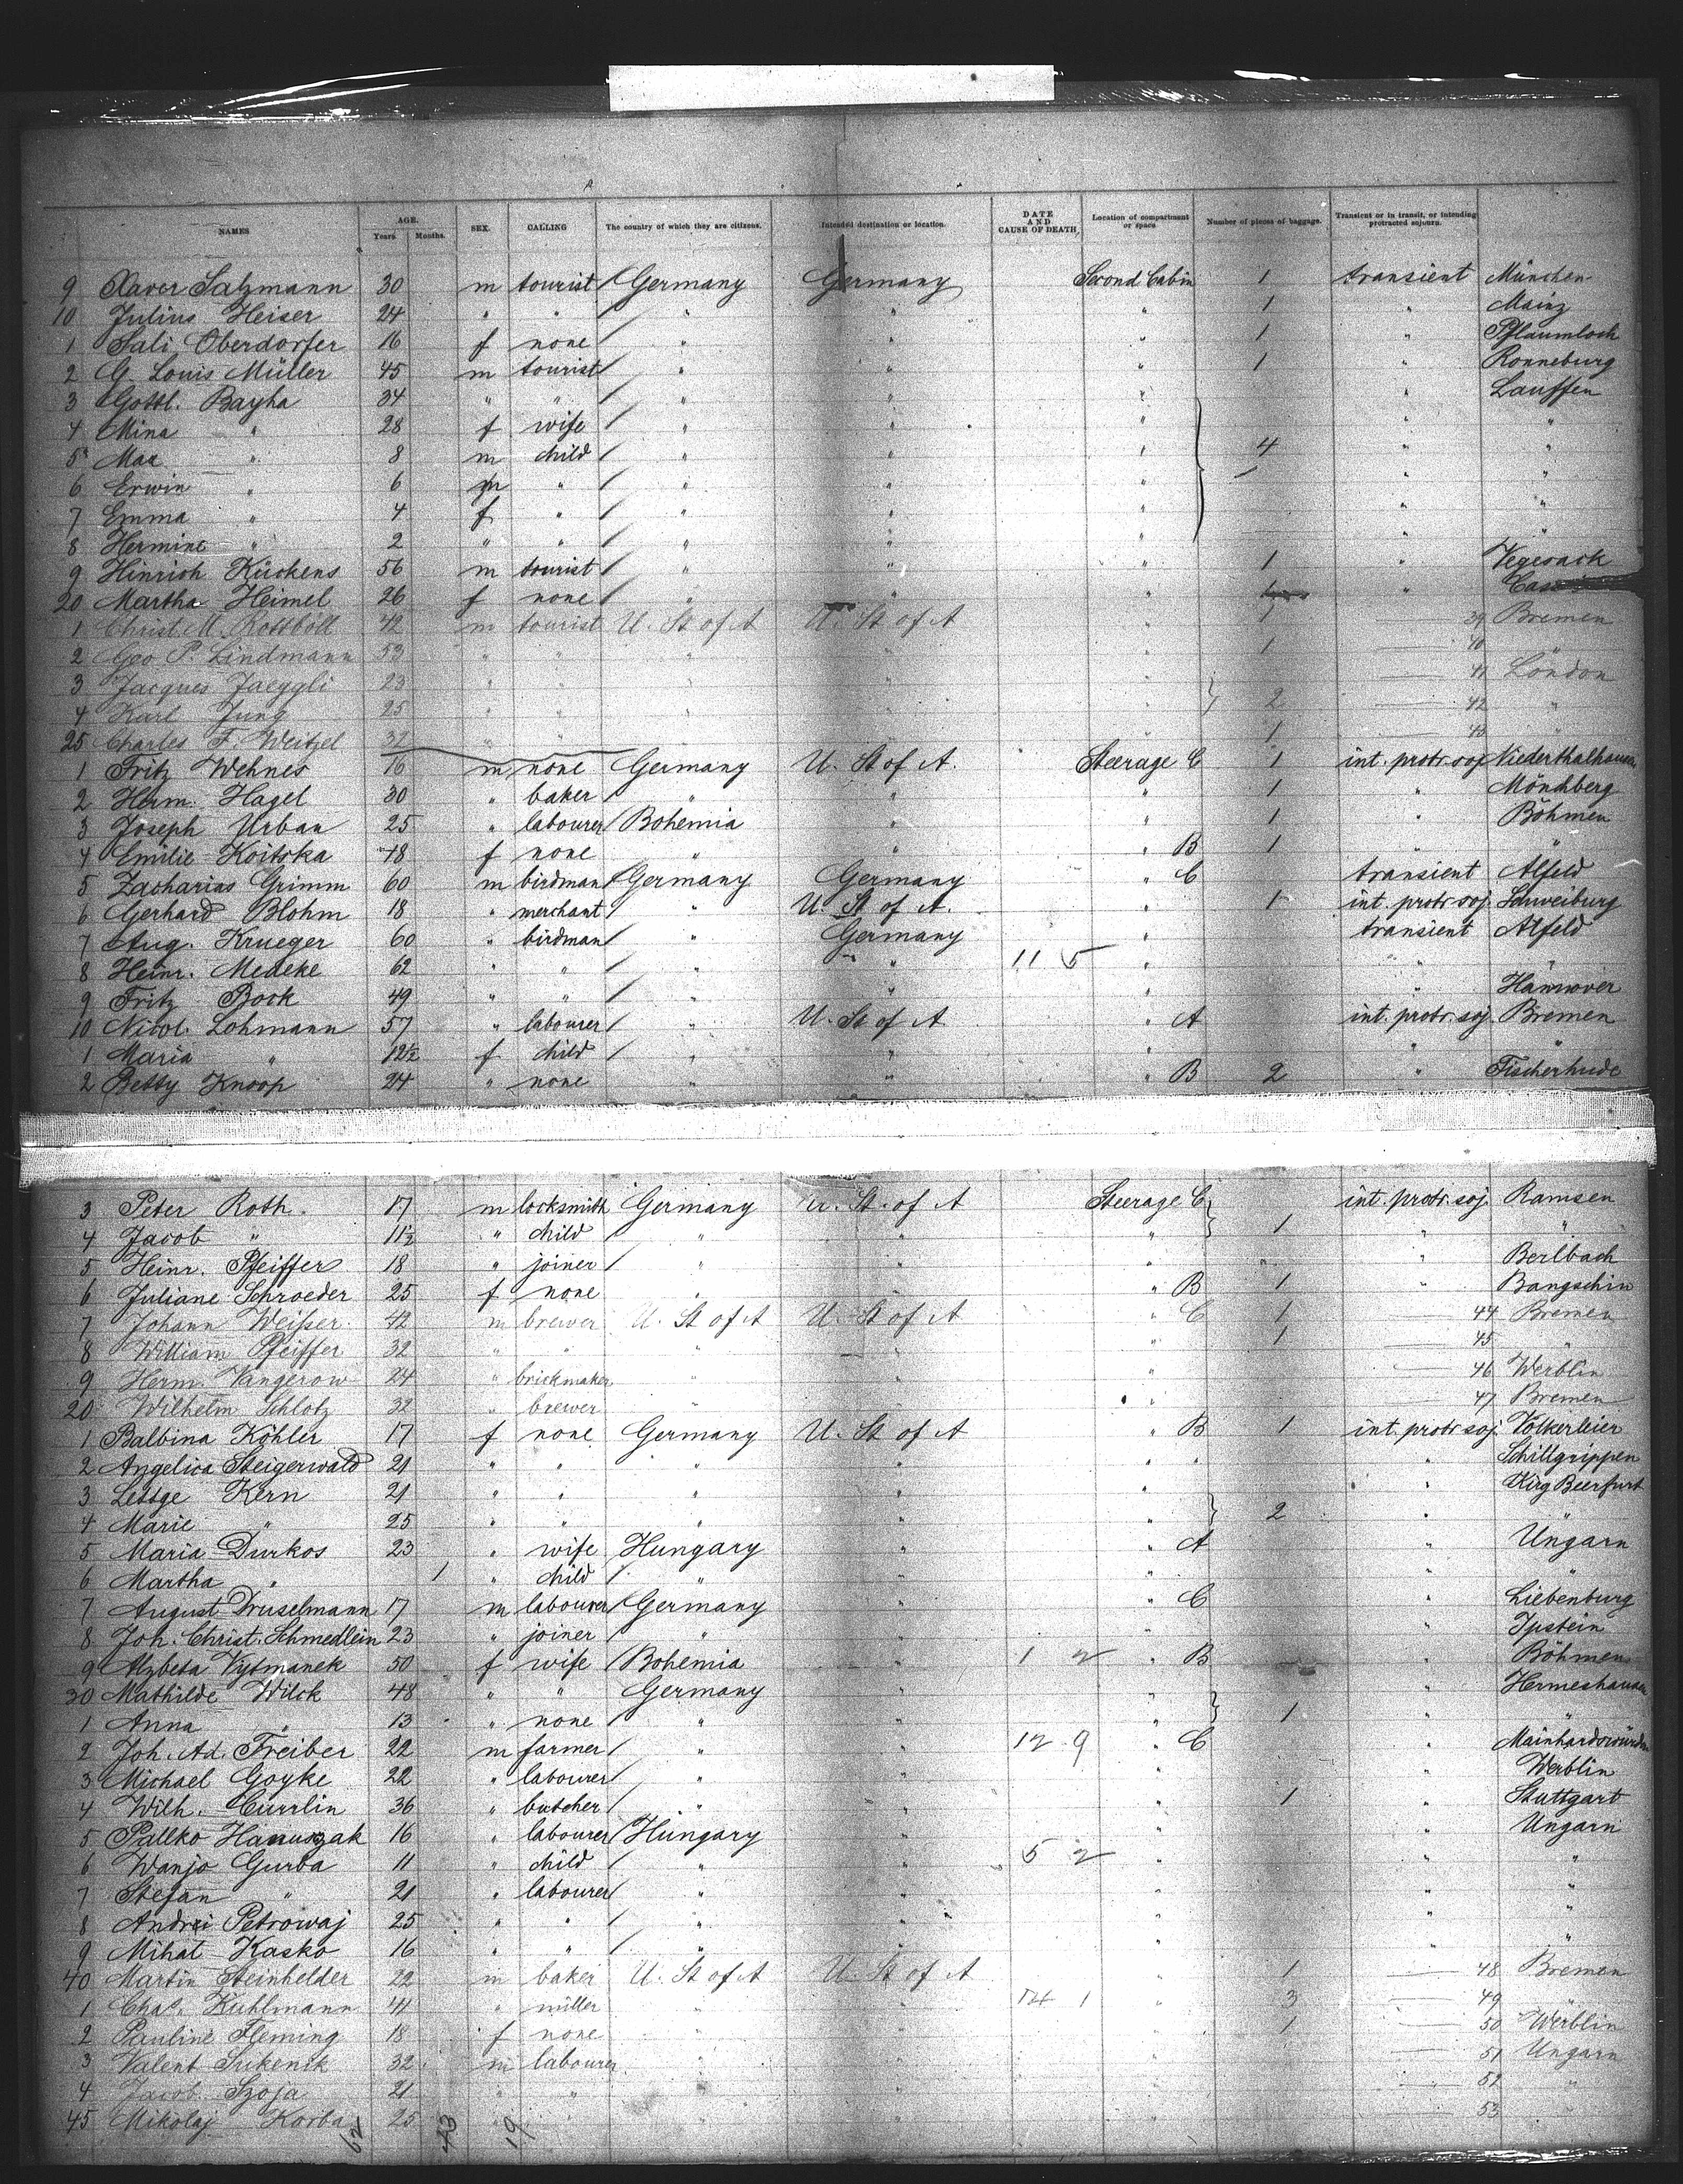 NAMES AGE. Years. Months. SEX. CALLING The country of which they are citizens. Intended destination or location. DATE AND CAUSE OF DEATH. Location of compartment or space. Number of pieces of baggage. Transient or in transit, or intending protracted sojourn.
9 Xaver Salzmann 30 m tourist / Germany Germany Second Cabin 1 transient München
10 Julius Heiser 24 " " / " " " 1 " Mainz
1 Sali Oberdorfer 16 f none / " " " 1 " Pflaumloch
2 G. Louis Müller 45 m tourist / " " " 1 " Ronneburg
3 Gottl. Bayha 34 " " / " " " " Lauffen
4 Mina " 28 f wife / " " " " "
5 Max " 8 m child / " " " 4 " "
6 Erwin " 6 m " / " " " " "
7 Emma " 4 f " / " " " " "
8 Hermine " 2 " " / " " " " "
9 Hinrich Kückens 56 m tourist / " " " 1 " Vegesack
20 Martha Heimel 26 f none / " " " "
1 Christ. M. Rottböll 42 m tourist U. St of A U. St of A " 1 39 Bremen
2 Geo P. Lindmann 53 " " " " " 1 40 "
3 Jacques Jaeggli 23 " " " " " 41 London
4 Karl Jung 25 " " " " " 2 42 "
25 Charles F. Weitzel 32 " " " " " 1 43 "
1 Fritz Wehnes 16 m none Germany U. St of A. Steerage C 1 int. protr. soj Niederthalhausen
2 Herm. Hagel 30 " baker " " " 1 " Mönchberg
3 Joseph Urban 25 " labourer / Bohemia " " 1 " Böhmen
4 Emilie Koitska 18 f none " " " B 1 " "
5 Zacharias Grimm 60 m birdman / Germany Germany " C transient Alfeld
6 Gerhard Blohm 18 " merchant / " U. St of A. " 1 int. protr. soj. Schweiburg
7 Aug. Krueger 60 " birdman / " Germany " transient Alfeld
8 Heinr. Medeke 62 " " / " " 11 5 " " "
9 Fritz Bock 49 " " / " " " " Hannover
10 Nicol. Lohmann 57 " labourer / " U. St of A " A int. protr. soj. Bremen
1 Maria " 12½ f child / " " " " "
2 Betty Knoop 24 " none " " " B 2 " Fischerhude
3 Peter Roth. 17 m locksmith Germany U. St. of A Steerage C int. protr. soj. Ramsen
4 Jacob " 11½ " child " " " 1 " "
5 Heinr. Pfeiffer 18 " joiner / " " " " Berlbach
6 Juliane Schroeder 25 f none " " " B 1 " Bangschin
7 Johann Weißer 42 m brewer U. St of A U. St of A " C 1 44 Bremen
8 William Pfeiffer 32 " " " " " 1 45 "
9 Herm. Vangerow 24 " brickmaker " " " 46 Werblin
20 Wilhelm Schlotz 32 " brewer " " " 47 Bremen
1 Balbina Köhler 17 f none Germany U. St of A " B 1 int. protr. soj. Volkerleier
2 Angelica Steigerwald 21 " " " " " " " Schillgrippen
3 Lettge Kern 21 " " " " " " Kirg Beerfurt
4 Marie " 25 " " " " " 2 " "
5 Maria Durkos 23 " wife Hungary " " A " Ungarn
6 Martha " 1 " child / " " " " "
7 August Druselmann 17 m labourer / Germany " " C " Liebenburg
8 Joh. Christ. Schmedlein 23 " joiner / " " " " Ipstein
9 Alzbeta Vytmanek 50 f wife / Bohemia " 1 2 " B " Böhmen
30 Mathilde Wilck 48 " " Germany " " " Hermeshausen
1 Anna " 13 " none / " " " 1 " "
2 Joh. Ad. Treiber 22 m farmer / " " 12 9 " C "
3 Michael Goyke 22 " labourer / " " " " Werblin
4 Wilh. Currlin 36 " butcher / " " " 1 " Stuttgart
5 Pallko Hanuszak 16 " labourer / Hungary " " " Ungarn
6 Wanjo Gurba 11 " child / " " 5 2 " " "
7 Stefan " 21 " labourer / " " " " "
8 Andrei Petrowaj 25 " " / " " " " "
9 Mihal Kasko 16 " " / " " " " "
40 Martin Steinhelder 22 m baker U. St of A U. St of A " 1 48 Bremen
1 Chas. Kuhlmann 41 " miller " " 14 1 " 3 49 "
2 Pauline Fleming 18 f none " " " 1 50 Werblin
3 Valent Sukenik 32 m labourer " " " 51 Ungarn
4 Jacob Szoja 21 " " " " 52 "
45 Mikolaj Korba 25 " " " " 53 "
62 43 19